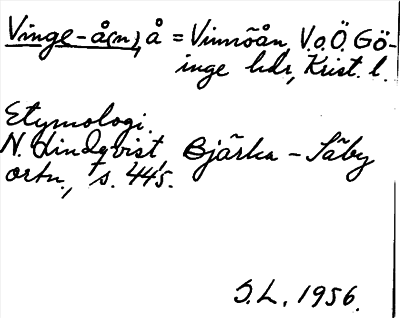 Vinge-å(n), å = Vinnöån, V.o.Ö. Gö-
inge hdr, Krist. l.
Etymologi.
N. Lindqvist, Bjärka - Säby
ortn., s. 445.
S.L. 1956.